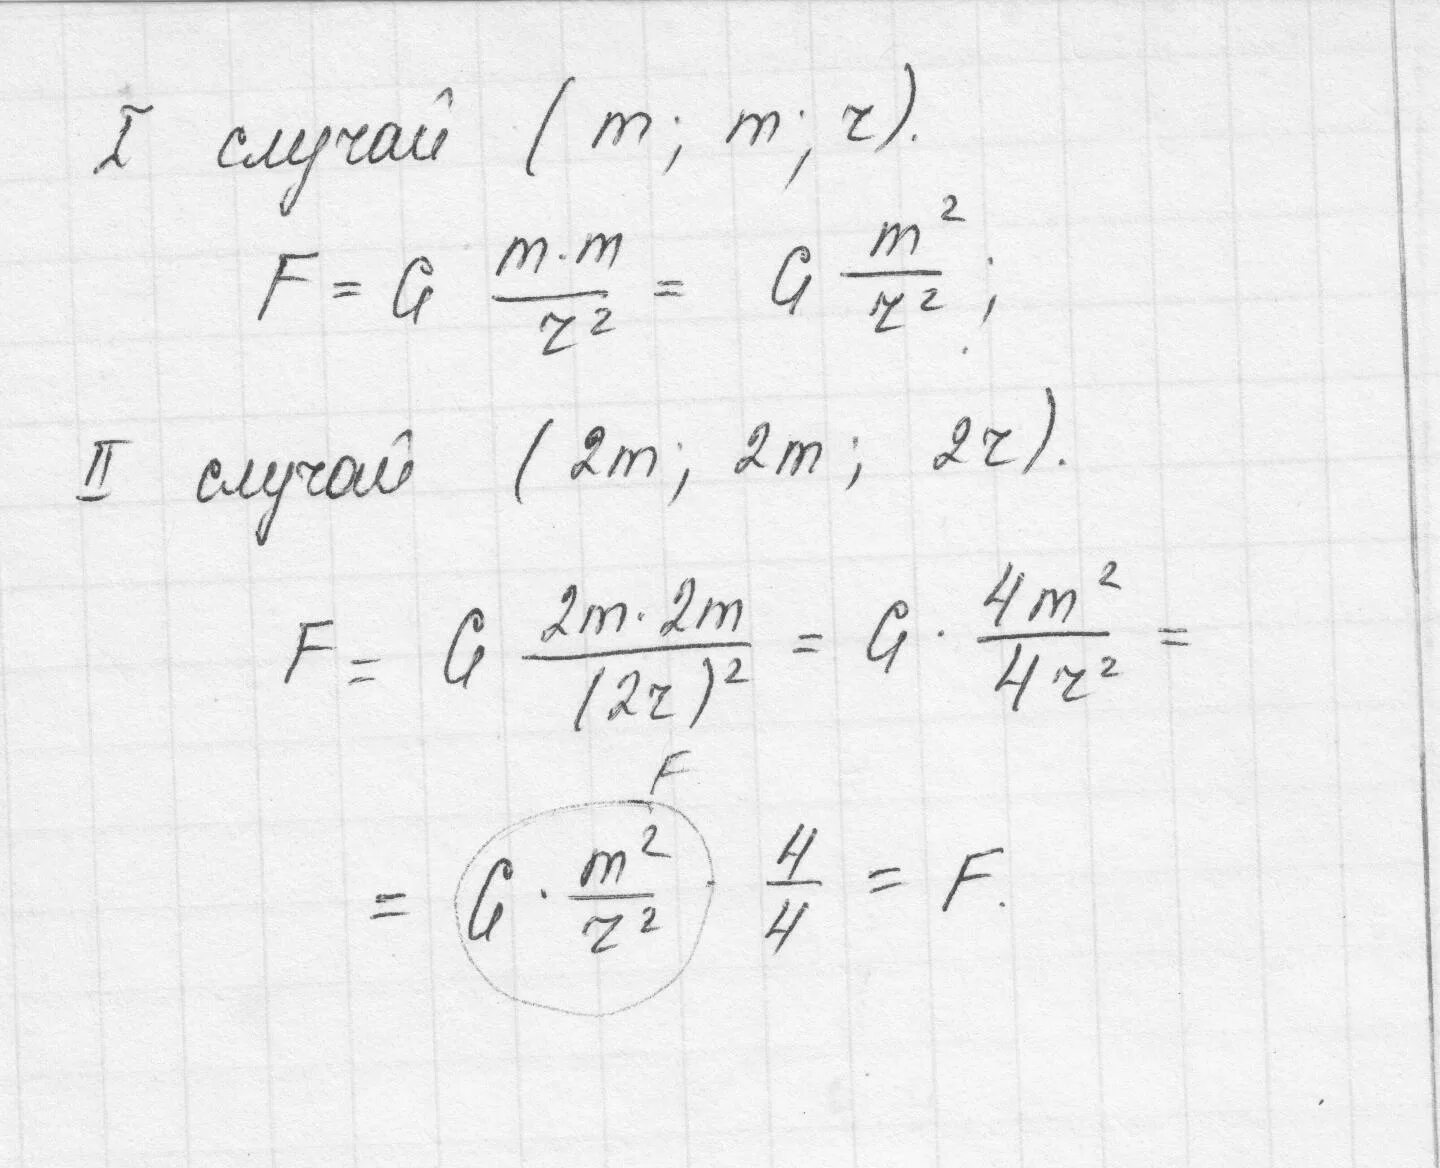 I случай (m; m; r).
F = G m·m / r² = G m² / r²;
II случай (2m; 2m; 2r).
F = G 2m·2m / (2r)² = G · 4m² / 4r² =
F
= G · m² / r² · 4 / 4 = F.